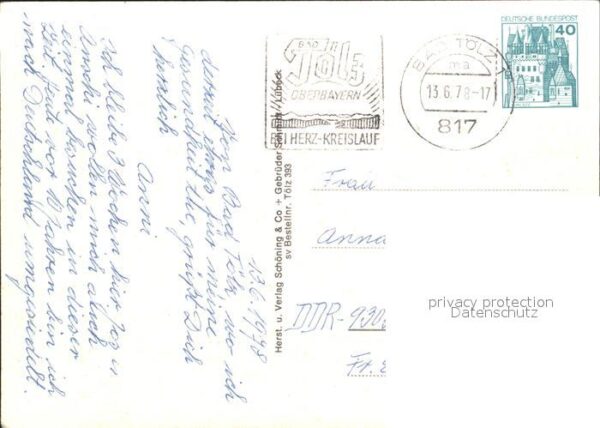 13.6.1978
Von Bad Tölz, wo ich
darauf etwas für meine
Gesundheit tue, grüßt Dich
herzlich
Anni
Ich bleibe 3 Wochen hier,
wollen mich auch
einmal besuchen in dieser
Zeit. Heute vor Jahren bin ich
nach Deutschland umgesiedelt.
Herst. u. Verlag Schöning & Co + Gebrüder Schmidt / Lübeck
sv Bestellnr. Tölz 393
BAD TÖLZ
OBERBAYERN
BEI HERZ-KREISLAUF
BAD TÖLZ 1
ma
13.6.78-17
817
DEUTSCHE BUNDESPOST
40
Frau
Anna
DDR-930
Fr.
privacy protection
Datenschutz